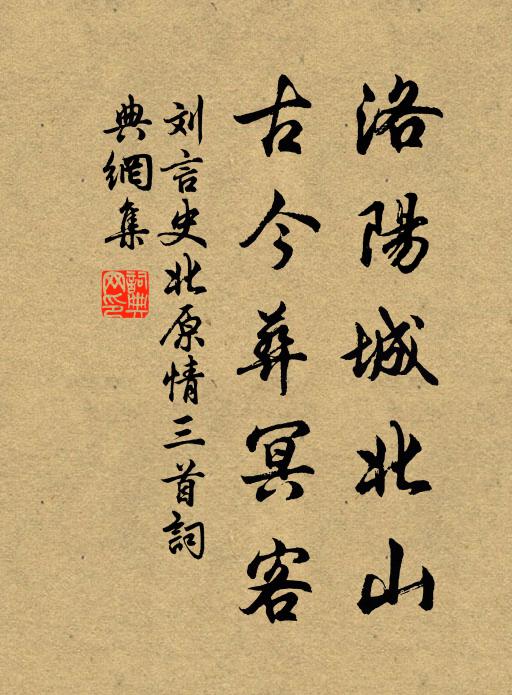 洛陽城北山
古今葬冥客
刘言史北原情三首詞
典網集
詞典網印